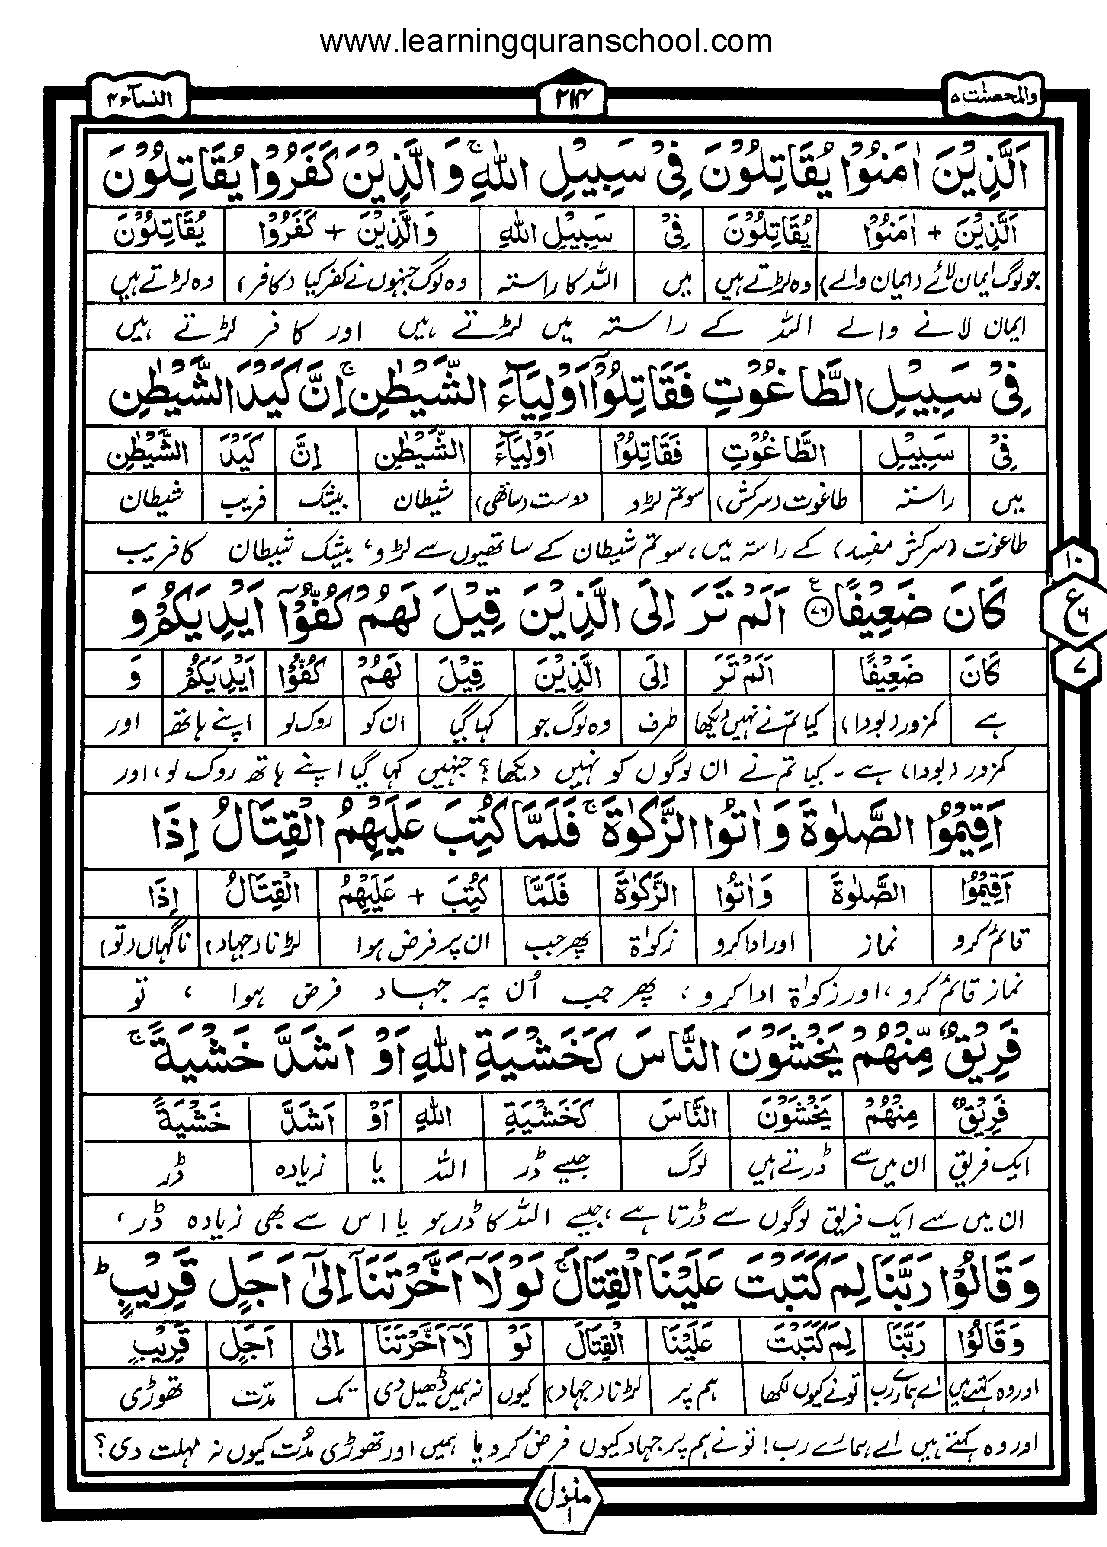 www.learningquranschool.com
والمحصنت ۵ ۲۱۴ النسآء ۴
اَلَّذِيْنَ اٰمَنُوْا يُقَاتِلُوْنَ فِيْ سَبِيْلِ اللّٰهِ ۚ وَالَّذِيْنَ كَفَرُوْا يُقَاتِلُوْنَ
اَلَّذِيْنَ + اٰمَنُوْا يُقَاتِلُوْنَ فِيْ سَبِيْلِ اللّٰهِ وَالَّذِيْنَ + كَفَرُوْا يُقَاتِلُوْنَ
جو لوگ ایمان لائے (ایمان والے) وہ لڑتے ہیں میں اللہ کا راستہ وہ لوگ جنہوں نے کفر کیا (کافر) وہ لڑتے ہیں
ایمان لانے والے اللہ کے راستہ میں لڑتے ہیں اور کافر لڑتے ہیں
فِيْ سَبِيْلِ الطَّاغُوْتِ فَقَاتِلُوْٓا اَوْلِيَآءَ الشَّيْطٰنِ ۚ اِنَّ كَيْدَ الشَّيْطٰنِ
فِيْ سَبِيْلِ الطَّاغُوْتِ فَقَاتِلُوْٓا اَوْلِيَآءَ الشَّيْطٰنِ اِنَّ كَيْدَ الشَّيْطٰنِ
میں راستہ طاغوت (سرکش) سو تم لڑو دوست (ساتھی) شیطان بیشک فریب شیطان
طاغوت (سرکش مفسد) کے راستہ میں، سو تم شیطان کے ساتھیوں سے لڑو، بیشک شیطان کا فریب
كَانَ ضَعِيْفًا ۧ ۷۶ اَلَمْ تَرَ اِلَى الَّذِيْنَ قِيْلَ لَهُمْ كُفُّوْٓا اَيْدِيَكُمْ وَ
۱۰
ع ۶
۷
كَانَ ضَعِيْفًا اَلَمْ تَرَ اِلَى الَّذِيْنَ قِيْلَ لَهُمْ كُفُّوْٓا اَيْدِيَكُمْ وَ
ہے کمزور (بودا) کیا تم نے نہیں دیکھا طرف وہ لوگ جو کہا گیا ان کو روک لو اپنے ہاتھ اور
کمزور (بودا) ہے ۔ کیا تم نے ان لوگوں کو نہیں دیکھا؟ جنہیں کہا گیا اپنے ہاتھ روک لو، اور
اَقِيْمُوا الصَّلٰوةَ وَاٰتُوا الزَّكٰوةَ ۚ فَلَمَّا كُتِبَ عَلَيْهِمُ الْقِتَالُ اِذَا
اَقِيْمُوا الصَّلٰوةَ وَاٰتُوا الزَّكٰوةَ فَلَمَّا كُتِبَ + عَلَيْهِمُ الْقِتَالُ اِذَا
قائم کرو نماز اور ادا کرو زکوٰۃ پھر جب ان پر فرض ہوا لڑنا (جہاد) ناگہاں (تو)
نماز قائم کرو، اور زکوٰۃ ادا کرو، پھر جب اُن پر جہاد فرض ہوا ، تو
فَرِيْقٌ مِّنْهُمْ يَخْشَوْنَ النَّاسَ كَخَشْيَةِ اللّٰهِ اَوْ اَشَدَّ خَشْيَةً ۚ
فَرِيْقٌ مِنْهُمْ يَخْشَوْنَ النَّاسَ كَخَشْيَةِ اللّٰهِ اَوْ اَشَدَّ خَشْيَةً
ایک فریق ان میں سے ڈرتے ہیں لوگ جیسے ڈر اللہ یا زیادہ ڈر
ان میں سے ایک فریق لوگوں سے ڈرتا ہے، جیسے اللہ کا ڈر ہو یا اس سے بھی زیادہ ڈر ،
وَقَالُوْا رَبَّنَا لِمَ كَتَبْتَ عَلَيْنَا الْقِتَالَ ۚ لَوْلَآ اَخَّرْتَنَآ اِلٰٓى اَجَلٍ قَرِيْبٍ ؕ
وَقَالُوْا رَبَّنَا لِمَ كَتَبْتَ عَلَيْنَا الْقِتَالَ لَوْ لَآ اَخَّرْتَنَآ اِلٰٓى اَجَلٍ قَرِيْبٍ
اور وہ کہتے ہیں اے ہمارے رب تونے کیوں لکھا ہم پر لڑنا (جہاد) کیوں نہ ہمیں ڈھیل دی تک مدّت تھوڑی
اور وہ کہتے ہیں اے ہمارے رب! تو نے ہم پر جہاد کیوں فرض کر دیا ہمیں اور تھوڑی مدّت کیوں نہ مہلت دی؟
منزل ۱